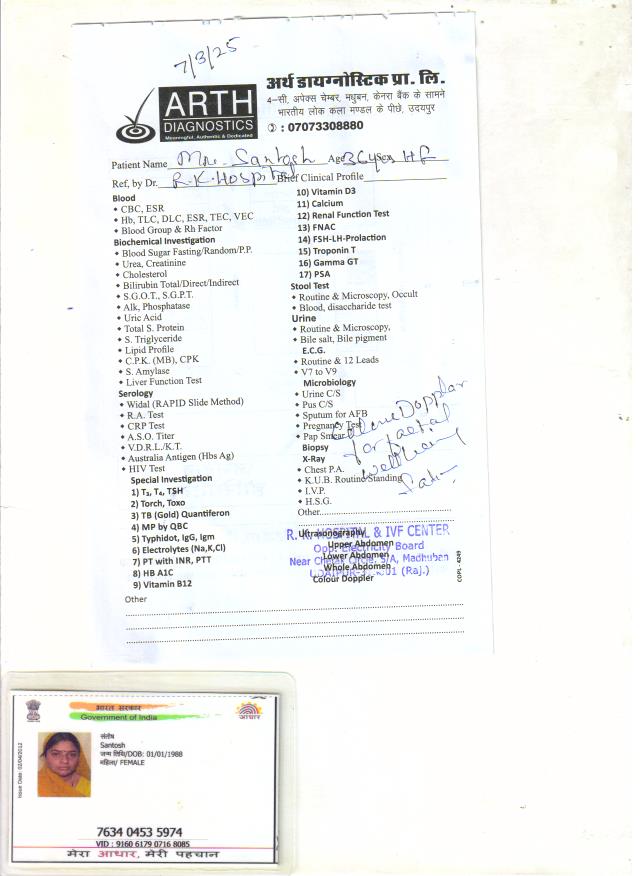 7/3/25
ARTH
DIAGNOSTICS
Meaningful, Authentic & Dedicated
अर्थ डायग्नोस्टिक प्रा. लि.
4-सी, अपेक्स चेम्बर, मधुबन, केनरा बैंक के सामने
भारतीय लोक कला मण्डल के पीछे, उदयपुर
: 07073308880
Patient Name Mrs. Santosh Age 36 years
Ref, by Dr. R.K. Hospital Brief Clinical Profile
Blood
• CBC, ESR
• Hb, TLC, DLC, ESR, TEC, VEC
• Blood Group & Rh Factor
Biochemical Investigation
• Blood Sugar Fasting/Random/P.P.
• Urea, Creatinine
• Cholesterol
• Bilirubin Total/Direct/Indirect
• S.G.O.T., S.G.P.T.
• Alk, Phosphatase
• Uric Acid
• Total S. Protein
• S. Triglyceride
• Lipid Profile
• C.P.K. (MB), CPK
• S. Amylase
• Liver Function Test
Serology
• Widal (RAPID Slide Method)
• R.A. Test
• CRP Test
• A.S.O. Titer
• V.D.R.L./K.T.
• Australia Antigen (Hbs Ag)
• HIV Test
Special Investigation
1) T₃, T₄, TSH
2) Torch, Toxo
3) TB (Gold) Quantiferon
4) MP by QBC
5) Typhidot, IgG, Igm
6) Electrolytes (Na,K,Cl)
7) PT with INR, PTT
8) HB A1C
9) Vitamin B12
Other
10) Vitamin D3
11) Calcium
12) Renal Function Test
13) FNAC
14) FSH-LH-Prolaction
15) Troponin T
16) Gamma GT
17) PSA
Stool Test
• Routine & Microscopy, Occult
• Blood, disaccharide test
Urine
• Routine & Microscopy,
• Bile salt, Bile pigment
E.C.G.
• Routine & 12 Leads
• V7 to V9
Microbiology
• Urine C/S
• Pus C/S
• Sputum for AFB
• Pregnancy Test
• Pap Smear
Biopsy
X-Ray
• Chest P.A.
• K.U.B. Routine/Standing
• I.V.P.
• H.S.G.
Other
Doppler
for faetal
well being
Ultrasonography
Upper Abdomen
Lower Abdomen
Whole Abdomen
Colour Doppler
R. K. HOSPITAL & IVF CENTER
Opp. Electricity Board
Near Circle, 5/A, Madhuban
UDAIPUR (Raj.)
COPL - 4249
भारत सरकार
Government of India
आधार
Issue Date: 02/04/2012
संतोष
Santosh
जन्म तिथि/DOB: 01/01/1988
महिला/ FEMALE
7634 0453 5974
VID : 9160 6179 0716 8085
मेरा आधार, मेरी पहचान